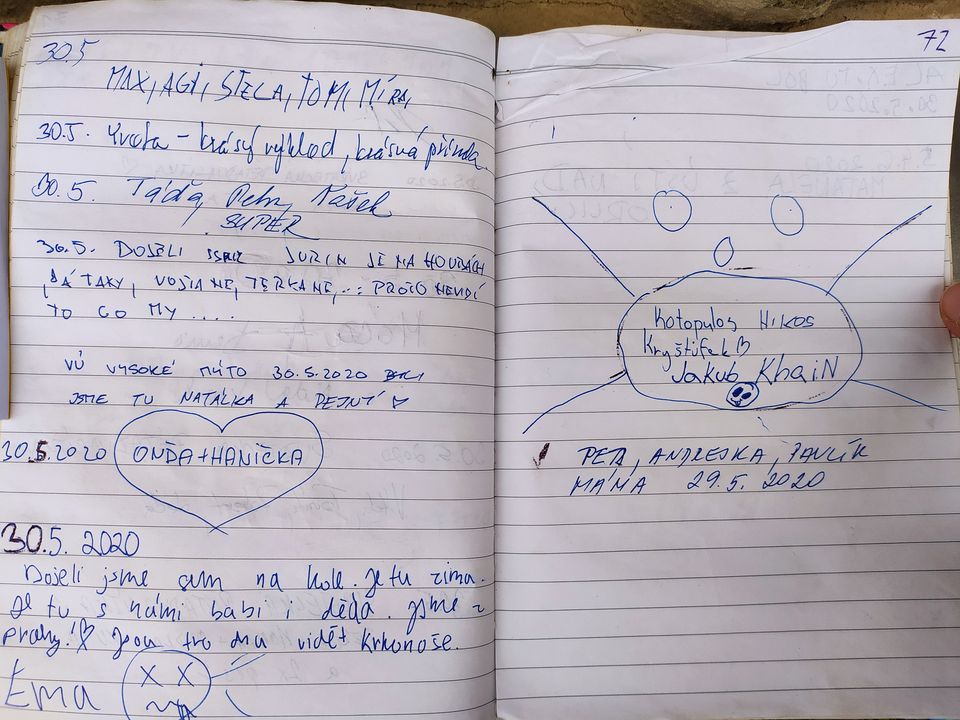 30.5
MAX, AGI, STELA, TOM, MÍRA,
30.5. Yveta - krásný výhled, krásná příroda.
30.5. Táďa, Petr, Vašek
SUPER
30.5. DOJELI JSME SURIN JE NA HOUBÁCH
BÁTAKY, VOJTA NE, TERKA NE, ... PROTO NEVIDÍ
TO CO MY ....
VÚ VYSOKÉ MÝTO 30.5.2020
JSME TU NATÁLKA A
30.5.2020 ONĎA + HANIČKA
30.5. 2020
Dojeli jsme sem na kole. Je tu zima.
Je tu s námi babi i děda. Jsme z
prahy! Jsou tro du vidět krkonoše.
Ema
72
Kotopulos Nikos
Kryštůfek
Jakub KhaiN
PETR, ANDREJKA, PAVLÍK
MÁMA 29.5. 2020